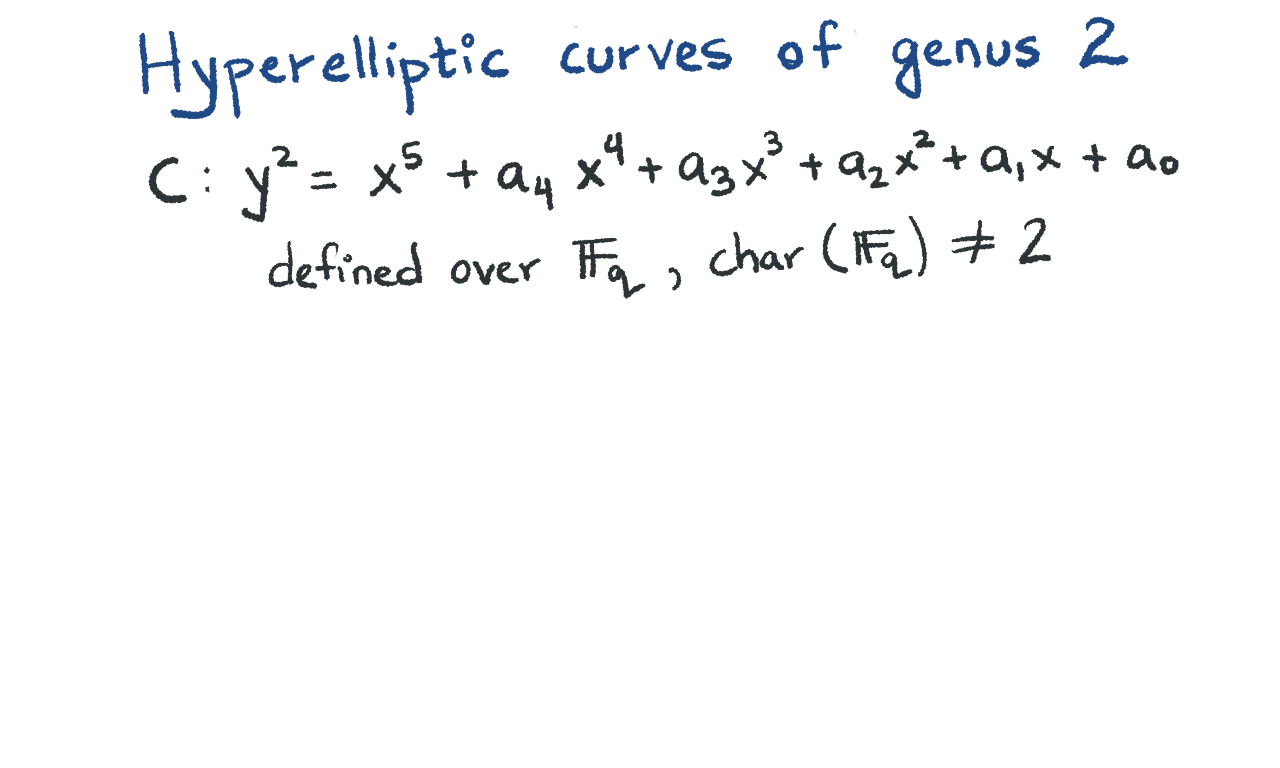 Hyperelliptic curves of genus 2
C: y² = x⁵ + a₄x⁴ + a₃x³ + a₂x² + a₁x + a₀
defined over 𝔽q, char(𝔽q) ≠ 2